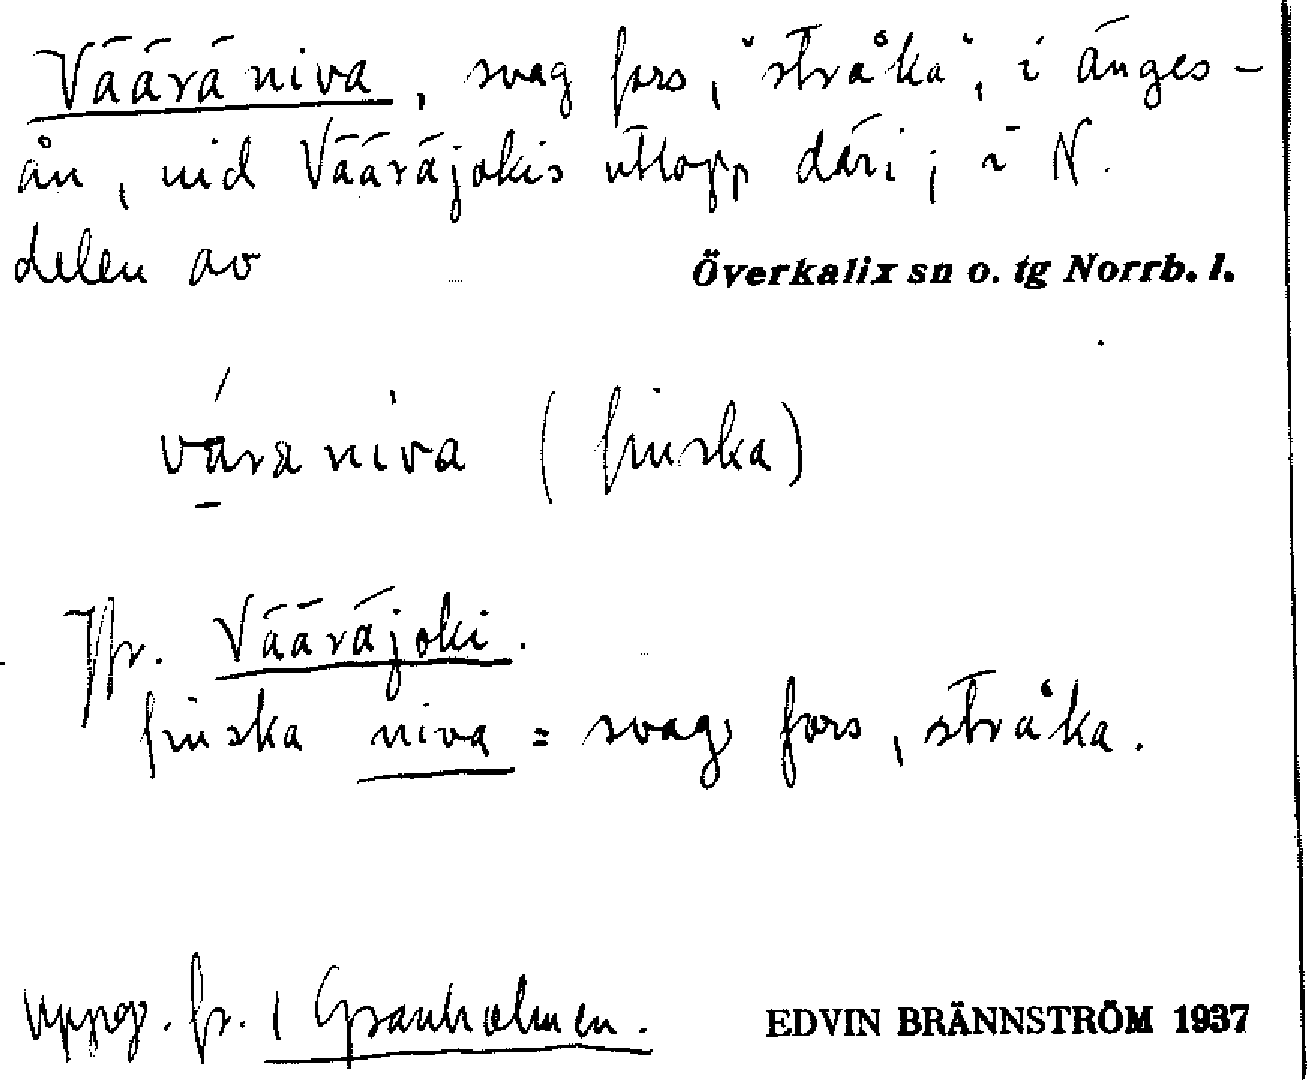 Vääräniva, svag fors, "stråka", i änges-
ån, vid Vääräjokis utlopp däri; i N.
delen av Överkalix sn o. tg Norrb. l.
váraniva (finska)
Jfr. Vääräjoki.
finska niva = svag fors, stråka.
uppg. fr. 1 Granholmen. EDVIN BRÄNNSTRÖM 1937